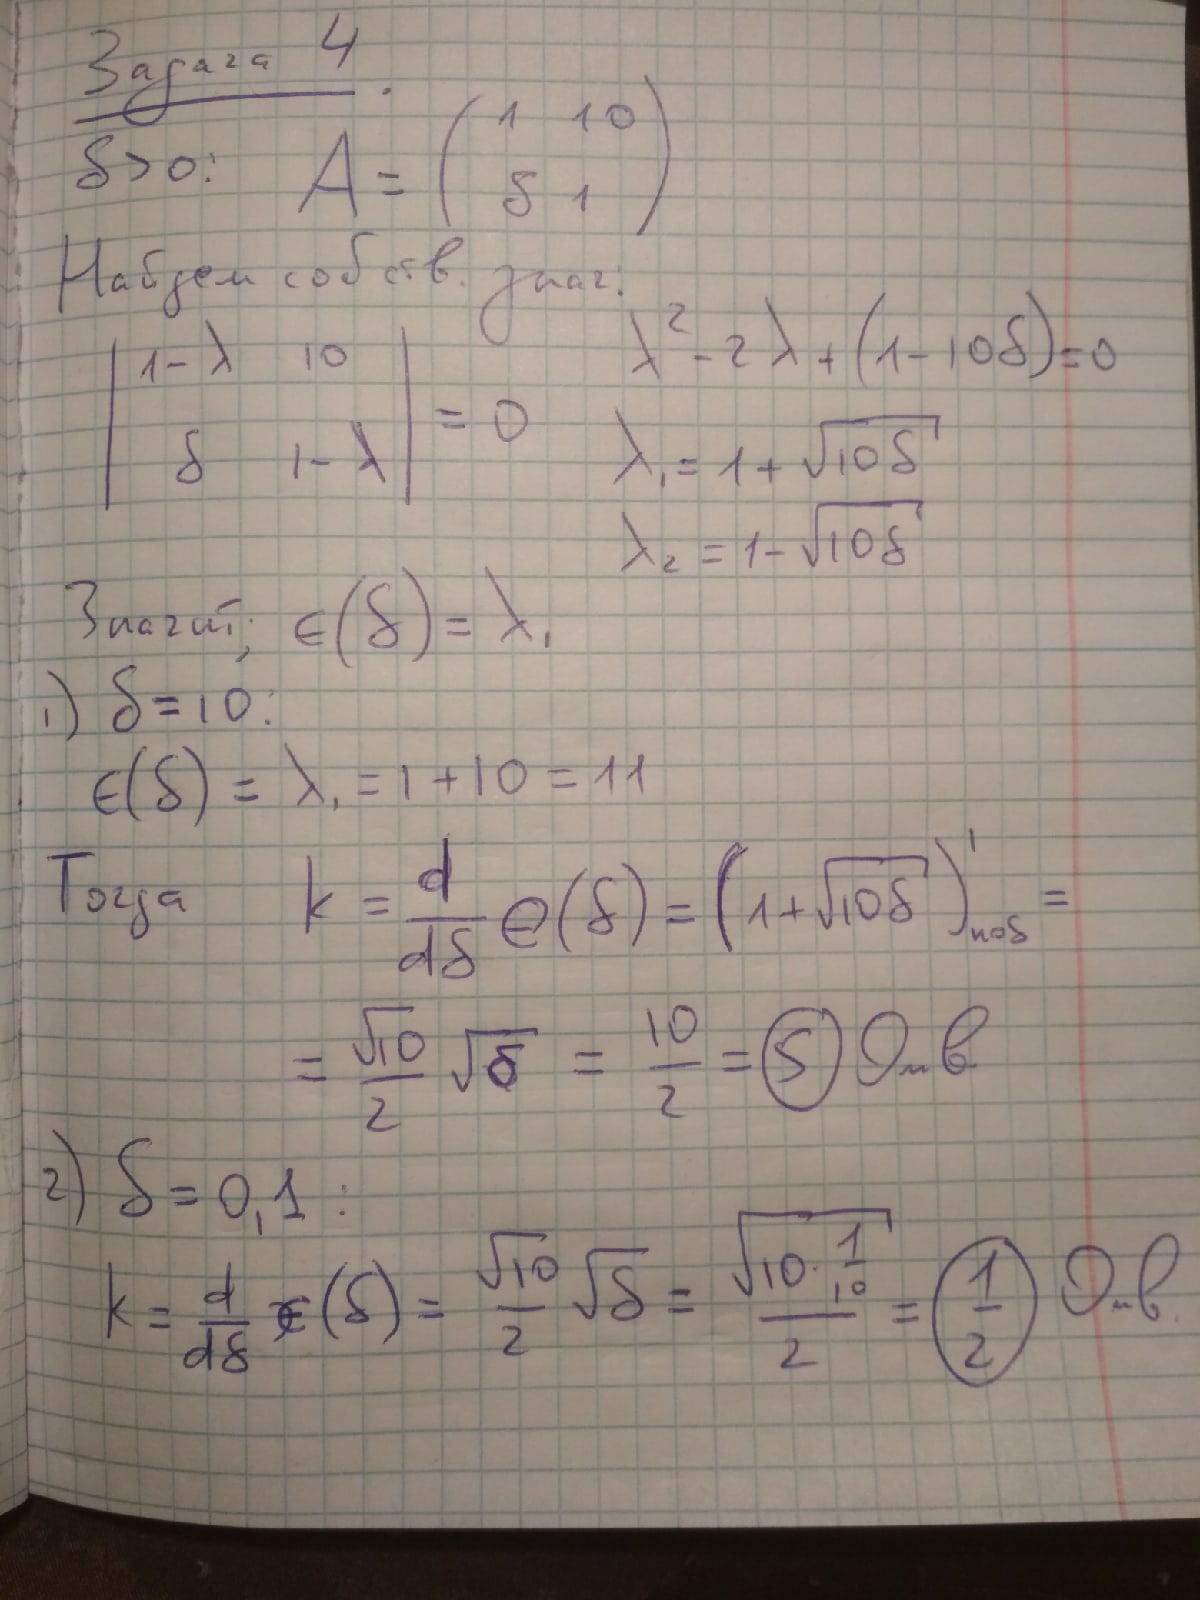 Задача 4.
δ>0: A = ( 1 10
δ 1 )
Найдем собств. знач:
| 1-λ 10
δ 1-λ | = 0
λ² - 2λ + (1-10δ) = 0
λ₁ = 1 + √10δ
λ₂ = 1 - √10δ
Значит, ϵ(δ) = λ₁
1) δ = 10:
ϵ(δ) = λ₁ = 1 + 10 = 11
Тогда k = d/dδ ϵ(δ) = (1 + √10δ)' по δ =
= √10/2 √δ = 10/2 = 5 Отв
2) δ = 0,1 :
k = d/dδ ϵ(δ) = √10/2 √δ = √10·1/10 / 2 = 1/2 Отв.